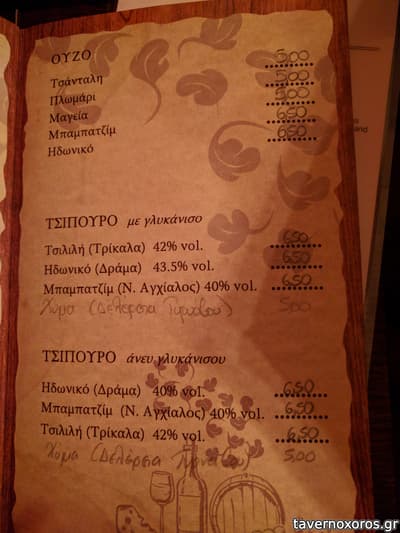 ΟΥΖΟ
Τσάνταλη 5,00
Πλωμάρι 5,00
Μαγεία 5,00
Μπαμπατζίμ 6,50
Ηδωνικό 6,50
ΤΣΙΠΟΥΡΟ με γλυκάνισο
Τσιλιλή (Τρίκαλα) 42% vol. 6,50
Ηδωνικό (Δράμα) 43.5% vol. 6,50
Μπαμπατζίμ (Ν. Αγχίαλος) 40% vol. 6,50
Χύμα (Δελέρεια Τυρνάβου) 5,00
ΤΣΙΠΟΥΡΟ άνευ γλυκάνισου
Ηδωνικό (Δράμα) 40% vol. 6,50
Μπαμπατζίμ (Ν. Αγχίαλος) 40% vol. 6,50
Τσιλιλή (Τρίκαλα) 42% vol. 6,50
Χύμα (Δελέρεια 5,00
and
tavernoxoros.gr